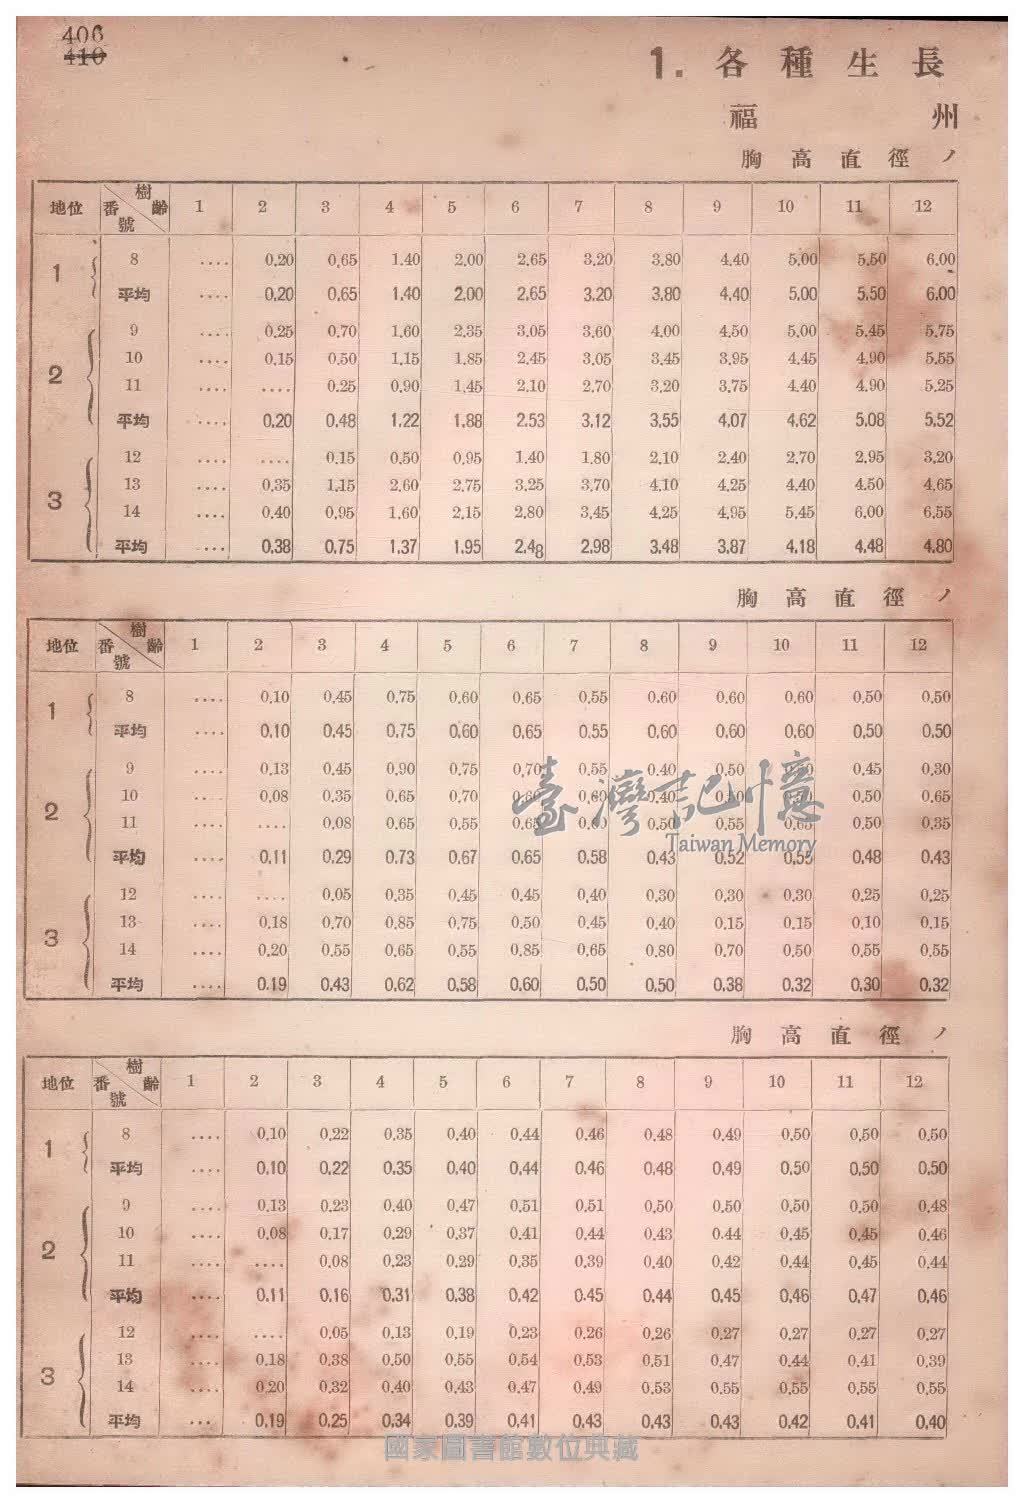 406
410
1. 各種生長
福州
胸高直徑ノ
地位 番號 樹齡 1 2 3 4 5 6 7 8 9 10 11 12
1 8 .... 0.20 0.65 1.40 2.00 2.65 3.20 3.80 4.40 5.00 5.50 6.00
平均 .... 0.20 0.65 1.40 2.00 2.65 3.20 3.80 4.40 5.00 5.50 6.00
9 .... 0.25 0.70 1.60 2.35 3.05 3.60 4.00 4.50 5.00 5.45 5.75
2 10 .... 0.15 0.50 1.15 1.85 2.45 3.05 3.45 3.95 4.45 4.90 5.55
11 .... .... 0.25 0.90 1.45 2.10 2.70 3.20 3.75 4.40 4.90 5.25
平均 .... 0.20 0.48 1.22 1.88 2.53 3.12 3.55 4.07 4.62 5.08 5.52
12 .... .... 0.15 0.50 0.95 1.40 1.80 2.10 2.40 2.70 2.95 3.20
3 13 .... 0.35 1.15 2.60 2.75 3.25 3.70 4.10 4.25 4.40 4.50 4.65
14 .... 0.40 0.95 1.60 2.15 2.80 3.45 4.25 4.95 5.45 6.00 6.55
平均 ... 0.38 0.75 1.37 1.95 2.48 2.98 3.48 3.87 4.18 4.48 4.80
胸高直徑ノ
地位 番號 樹齡 1 2 3 4 5 6 7 8 9 10 11 12
1 8 .... 0.10 0.45 0.75 0.60 0.65 0.55 0.60 0.60 0.60 0.50 0.50
平均 .... 0.10 0.45 0.75 0.60 0.65 0.55 0.60 0.60 0.60 0.50 0.50
9 .... 0.13 0.45 0.90 0.75 0.70 0.55 0.40 0.50 0.50 0.45 0.30
2 10 .... 0.08 0.35 0.65 0.70 0.60 0.60 0.40 0.50 0.50 0.50 0.65
11 .... .... 0.08 0.65 0.55 0.65 0.60 0.50 0.55 0.65 0.50 0.35
平均 .... 0.11 0.29 0.73 0.67 0.65 0.58 0.43 0.52 0.55 0.48 0.43
12 .... .... 0.05 0.35 0.45 0.45 0.40 0.30 0.30 0.30 0.25 0.25
3 13 .... 0.18 0.70 0.85 0.75 0.50 0.45 0.40 0.15 0.15 0.10 0.15
14 .... 0.20 0.55 0.65 0.55 0.85 0.65 0.80 0.70 0.50 0.55 0.55
平均 .... 0.19 0.43 0.62 0.58 0.60 0.50 0.50 0.38 0.32 0.30 0.32
臺灣記憶
Taiwan Memory
胸高直徑ノ
地位 番號 樹齡 1 2 3 4 5 6 7 8 9 10 11 12
1 8 .... 0.10 0.22 0.35 0.40 0.44 0.46 0.48 0.49 0.50 0.50 0.50
平均 .... 0.10 0.22 0.35 0.40 0.44 0.46 0.48 0.49 0.50 0.50 0.50
9 .... 0.13 0.23 0.40 0.47 0.51 0.51 0.50 0.50 0.50 0.50 0.48
2 10 .... 0.08 0.17 0.29 0.37 0.41 0.44 0.43 0.44 0.45 0.45 0.46
11 .... .... 0.08 0.23 0.29 0.35 0.39 0.40 0.42 0.44 0.45 0.44
平均 .... 0.11 0.16 0.31 0.38 0.42 0.45 0.44 0.45 0.46 0.47 0.46
12 .... .... 0.05 0.13 0.19 0.23 0.26 0.26 0.27 0.27 0.27 0.27
3 13 .... 0.18 0.38 0.50 0.55 0.54 0.53 0.51 0.47 0.44 0.41 0.39
14 .... 0.20 0.32 0.40 0.43 0.47 0.49 0.53 0.55 0.55 0.55 0.55
平均 ... 0.19 0.25 0.34 0.39 0.41 0.43 0.43 0.43 0.42 0.41 0.40
國家圖書館數位典藏